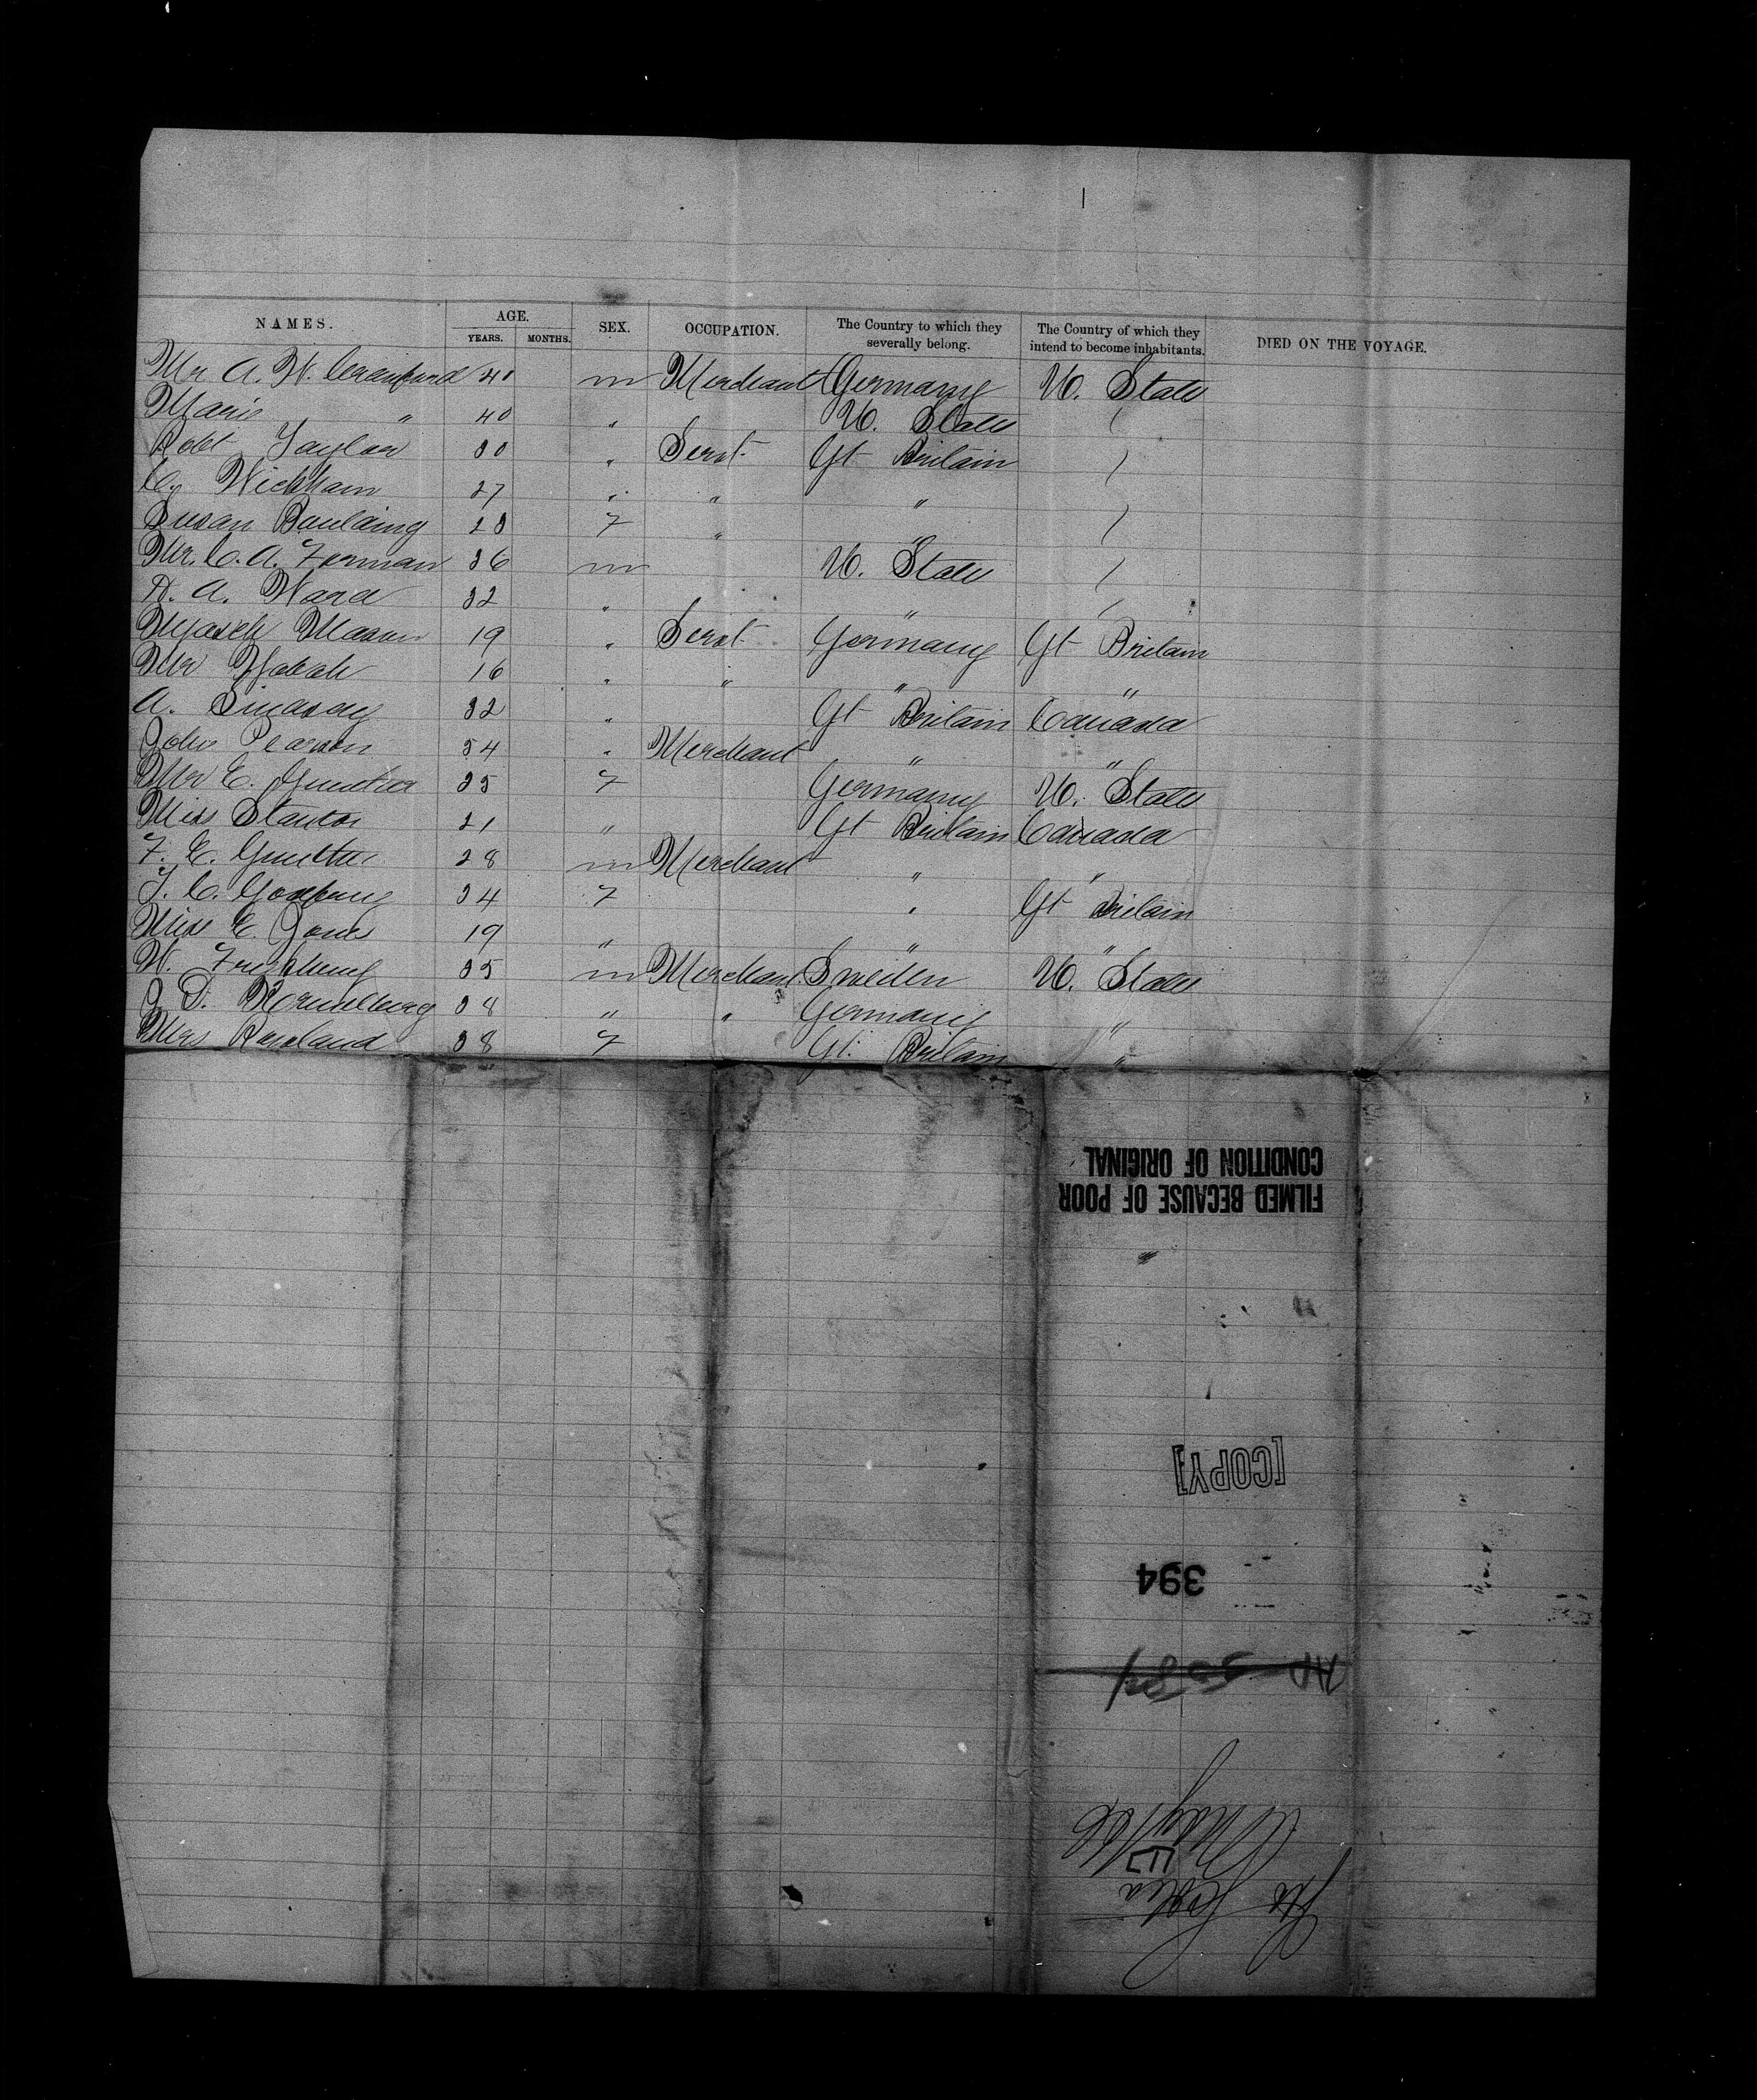 NAMES. AGE. YEARS. MONTHS. SEX. OCCUPATION. The Country to which they severally belong. The Country of which they intend to become inhabitants. DIED ON THE VOYAGE.
Mr A. W. Cranford 40 m Merchant Germany U. States
Marie " 40 " U. States /
Robt Taylor 30 " Servt Gt Britain /
C. Wickham 27 " " "
Susan Baulding 23 F " " /
Mr. C. A. Forman 36 m U. States /
A. A. Ward 32 " " /
Mason 19 " Servt Germany Gt Britain
Mr 16 " " " "
A. Lindsay 32 " Gt Britain Canada
John Pearson 54 " Merchant " "
Mr E. Gunther 35 F Germany U. States
Miss Stanton 21 " Gt Britain Canada
F. E. Gunther 28 m Merchant " "
34 F " Gt Britain
Miss E. Jones 19 " " "
W. 35 m Merchant Sweden U. States
J. D. 38 " " Germany "
Mrs Rowland 38 F Gt. Britain "
FILMED BECAUSE OF POOR
CONDITION OF ORIGINAL
[COPY]
394
May